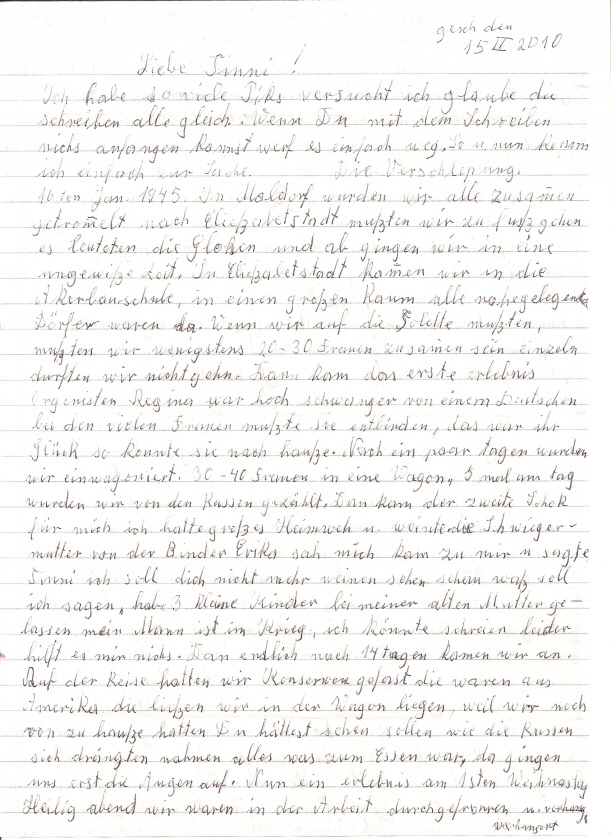 gesch den
15 II 2010
Liebe Tinni!
Ich habe so viele Tiks versucht ich glaube die
schreiben alle gleich. Wenn Du mit dem Schreiben
nichs anfangen kannst werf es einfach weg. So u. nun komm
ich einfach zur Sache. Die Verschlepung.
16ten Jan. 1945. In Maldorf wurden wir alle zusam̄en
getrom̄elt nach Eließabetstadt mußten wir zu fuß gehen
es leuteten die Gloken und ab gingen wir in eine
ungewiße zeit. In Eließabetstadt kam̄en wir in die
Akerbauschule, in einen großen Raum alle nahegelegende
Dörfer waren da. Wenn wir auf die Tolette mußten,
mußten wir wenigstens 20-30 Frauen zusam̄en sein einzeln
durften wir nicht gehn. Dann kam das erste erlebnis
Organisten Regina war hoch schwanger von einem Deutschen
bei den vielen Frauen mußte sie entbinden, das war ihr
Glück so konnte sie nach hauße. Nach ein paar tagen wurden
wir einwagoniert. 30-40 Frauen in eine Wagon, 5 mal am tag
wurden wir von den Russen gezählt. Dan kam der zweite Schok
für mich ich hatte großes Heimweh u. weinte die Schwieger-
mutter von der Binder Erika sah mich kam zu mir u sagte
Tinni ich soll dich nicht mehr weinen sehen schau waß soll
ich sagen, habe 3 kleine Kinder bei meiner alten Mutter ge-
lassen mein Mann ist im Krieg, ich könnte schreien leider
hilft es mir nichs. Dan endlich nach 14 tagen kamen wir an.
Auf der Reise hatten wir Konserwen gefast die waren aus
Amerika die ließen wir in der Wagon liegen, weil wir noch
von zu hauße hatten Du hättest sehen sollen wie die Russen
sich drängten nahmen alles was zum Essen war, da gingen
uns erst die Augen auf. Nun ein erlebnis am 1sten Weihnastag
Heilig abend wir waren in der Arbeit durchgefroren u.
verhungert